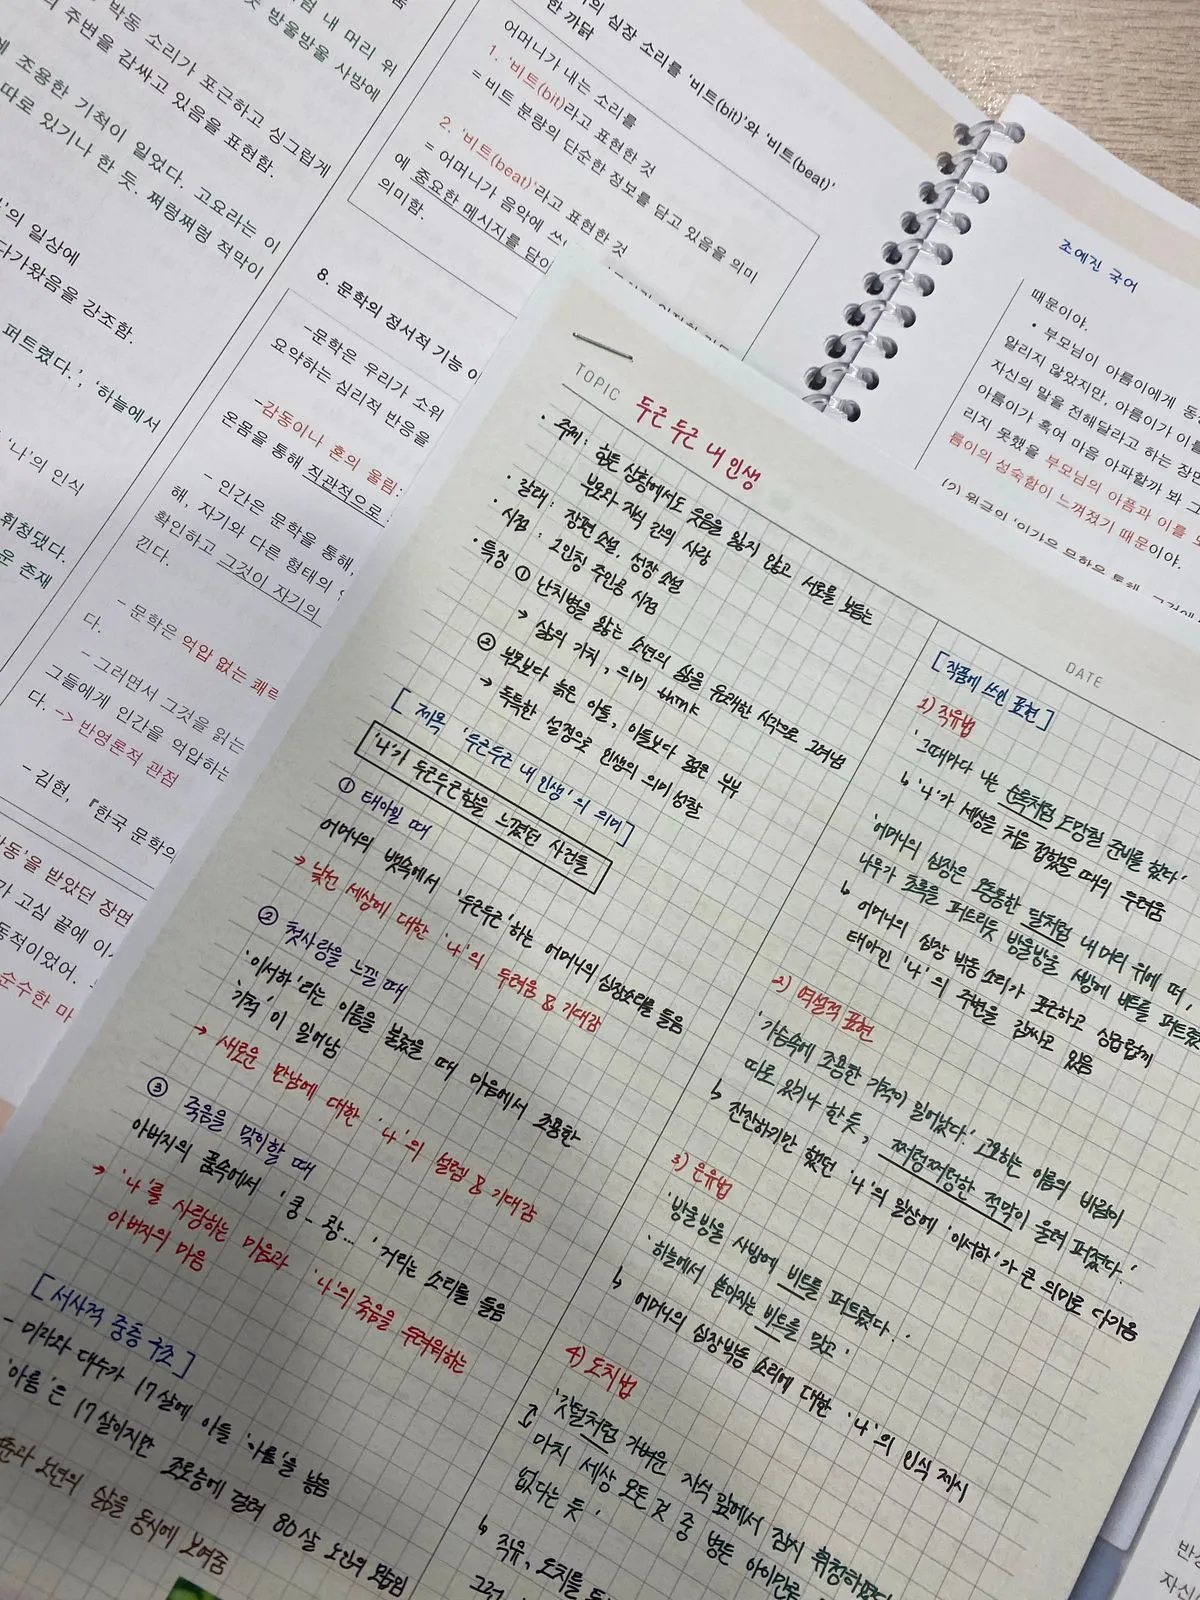 내 머리 위
방울방울 사방에
박동 소리가 포근하고 싱그럽게
의 주변을 감싸고 있음을 표현함.
조용한 기척이 일었다. 고요라는 이
따로 있기나 한 듯. 쩌렁쩌렁 적막이
의 일상에
다가왔음을 강조함.
퍼트렸다.', '하늘에서
'나'의 인식
휘청댔다.
운 존재
심장 소리를 '비트(bit)'와 '비트(beat)'
한 까닭
어머니가 내는 소리를
1. '비트(bit)라고 표현한 것
= 비트 분량의 단순한 정보를 담고 있음을 의미
2. '비트(beat)'라고 표현한 것
= 어머니가 음악에
에 중요한 메시지를
의미함.
8. 문학의 정서적 기능
-문학은 우리가 소위
요약하는 심리적 반응을
-감동이나 혼의 울림
온몸을 통해 직관적으로
- 인간은 문학을 통해,
해, 자기와 다른 형태의
확인하고 그것이 자기의
낀다.
- 문학은 억압 없는
다.
- 그러면서 그것을 읽는
그들에게 인간을 억압하는
다. -> 반영론적 관점
- 김현, 『한국 문학의
동'을 받았던 장면
가 고심 끝에
동적이었어.
순수한 마
조예진 국어
때문이야.
• 부모님이 아름이에게
알리지 않았지만, 아름이가
자신의 말을 전해달라고 하는
아름이가 혹여 마음 아파할까 봐
리지 못했을 부모님의 아픔과 이를
름이의 성숙함이 느껴졌기 때문이야.
TOPIC 두근 두근 내 인생
• 주제 : 힘든 상황에서도 웃음을 잃지 않고 서로를 보듬는
부모와 자식 간의 사랑
• 갈래 : 장편 소설, 성장 소설
• 시점 : 1인칭 주인공 시점
• 특징 ① 난치병을 앓는 소년의 삶을 유쾌한 시각으로 그려냄
→ 삶의 가치, 의미 think
② 부모보다 늙은 아들, 아들보다 젊은 부부
→ 독특한 설정으로 인생의 의미 성찰
[ 제목 '두근두근 내 인생'의 의미]
'나'가 두근두근함을 느꼈던 사건들
① 태아일 때
어머니의 뱃속에서 '두근두근'하는 어머니의 심장소리를 들음
→ 낯선 세상에 대한 '나'의 두려움 & 기대감
② 첫사랑을 느낄 때
'이서하'라는 이름을 불렀을 때 마음에서 조용한
'기척'이 일어남
→ 새로운 만남에 대한 '나'의 설렘 & 기대감
③ 죽음을 맞이할 때
아버지의 품속에서 '쿵- 쾅...' 거리는 소리를 들음
→ '나'를 사랑하는 마음과 '나'의 죽음을 두려워하는
아버지의 마음
[ 서사적 중층 구조 ]
- 미라와 대수가 17살에 아들 '아름'을 낳음
'아름'은 17살이지만 조로증에 걸려 80살 노인의 모습임
노년의 삶을 동시에 보여줌
DATE
[ 작품에 쓰인 표현 ]
1) 직유법
'그때마다 나는 순록처럼 도망칠 준비를 했다'
↳ '나'가 세상을 처음 접했을 때의 두려움
'어머니의 심장은 오동통한 달처럼 내 머리 위에 떠,
나무가 초록을 퍼트리듯 방울방울 사방에 비트를 퍼트렸
↳ 어머니의 심장 박동 소리가 포근하고 싱그럽게
태아인 '나'의 주변을 감싸고 있음
2) 역설적 표현
'가슴속에 조용한 기척이 일어났다.' 고요하는 이름의 바람이
따로 있거나 한 듯, 쩌렁쩌렁한 적막이 울려 퍼졌다.'
↳ 잔잔하기만 했던 '나'의 일상에 '이서하'가 큰 의미로 다가옴
3) 은유법
'방울방울 사방에 비트를 퍼트렸다..'
'하늘에서 쏟아지는 비트를 맞고'
↳ 어머니의 심장박동 소리에 대한 '나'의 인식 제시
4) 도치법
'깃털처럼 가벼운 자식 앞에서 잠시 휘청하였다
마치 세상 모든 것 중 병든 아이만큼
없다는 듯'
↳ 직유, 도치를